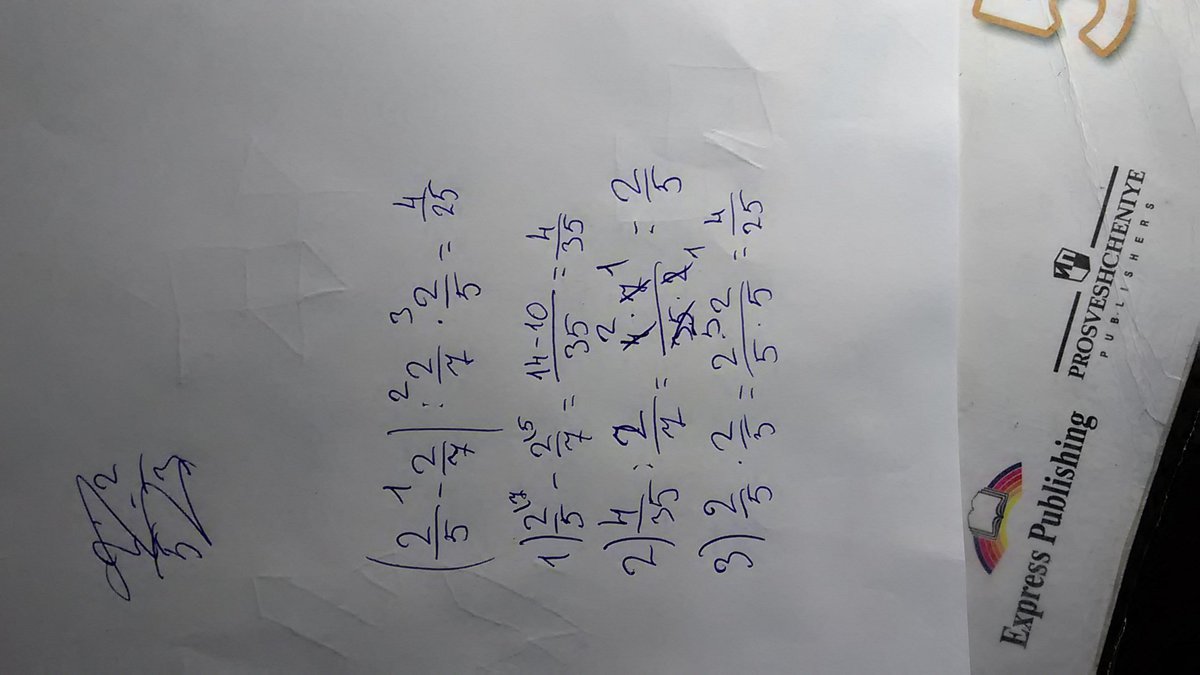 (2/5 - 2/7) : 2/7 · 2/5 = 4/25
1) 2/5 - 2/7 = 14-10/35 = 4/35
2) 4/35 : 2/7 = 4·7/35·2 = 2/5
3) 2/5 · 2/5 = 2·2/5·5 = 4/25
Express Publishing
PROSVESHCHENIYE
PUBLISHERS